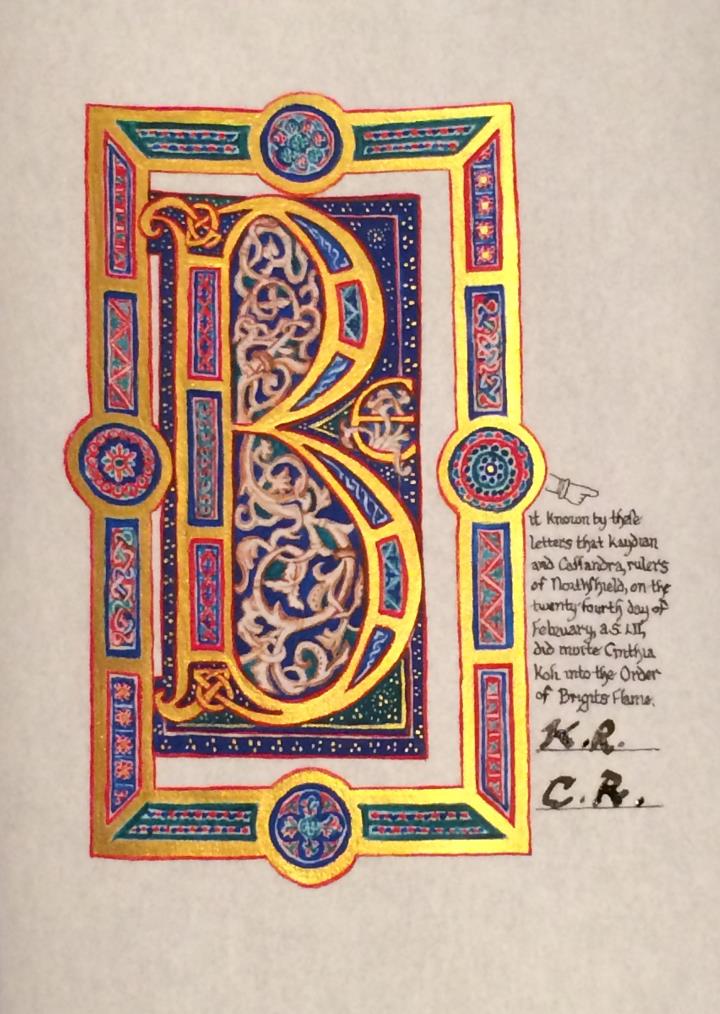 BE
it known by these
letters that Kaydian
and Cassandra, rulers
of Northshield, on the
twenty fourth day of
February, a.s. LII,
did invite Cynthia
Koh into the Order
of Brigits Flame.
K.R.
C.R.